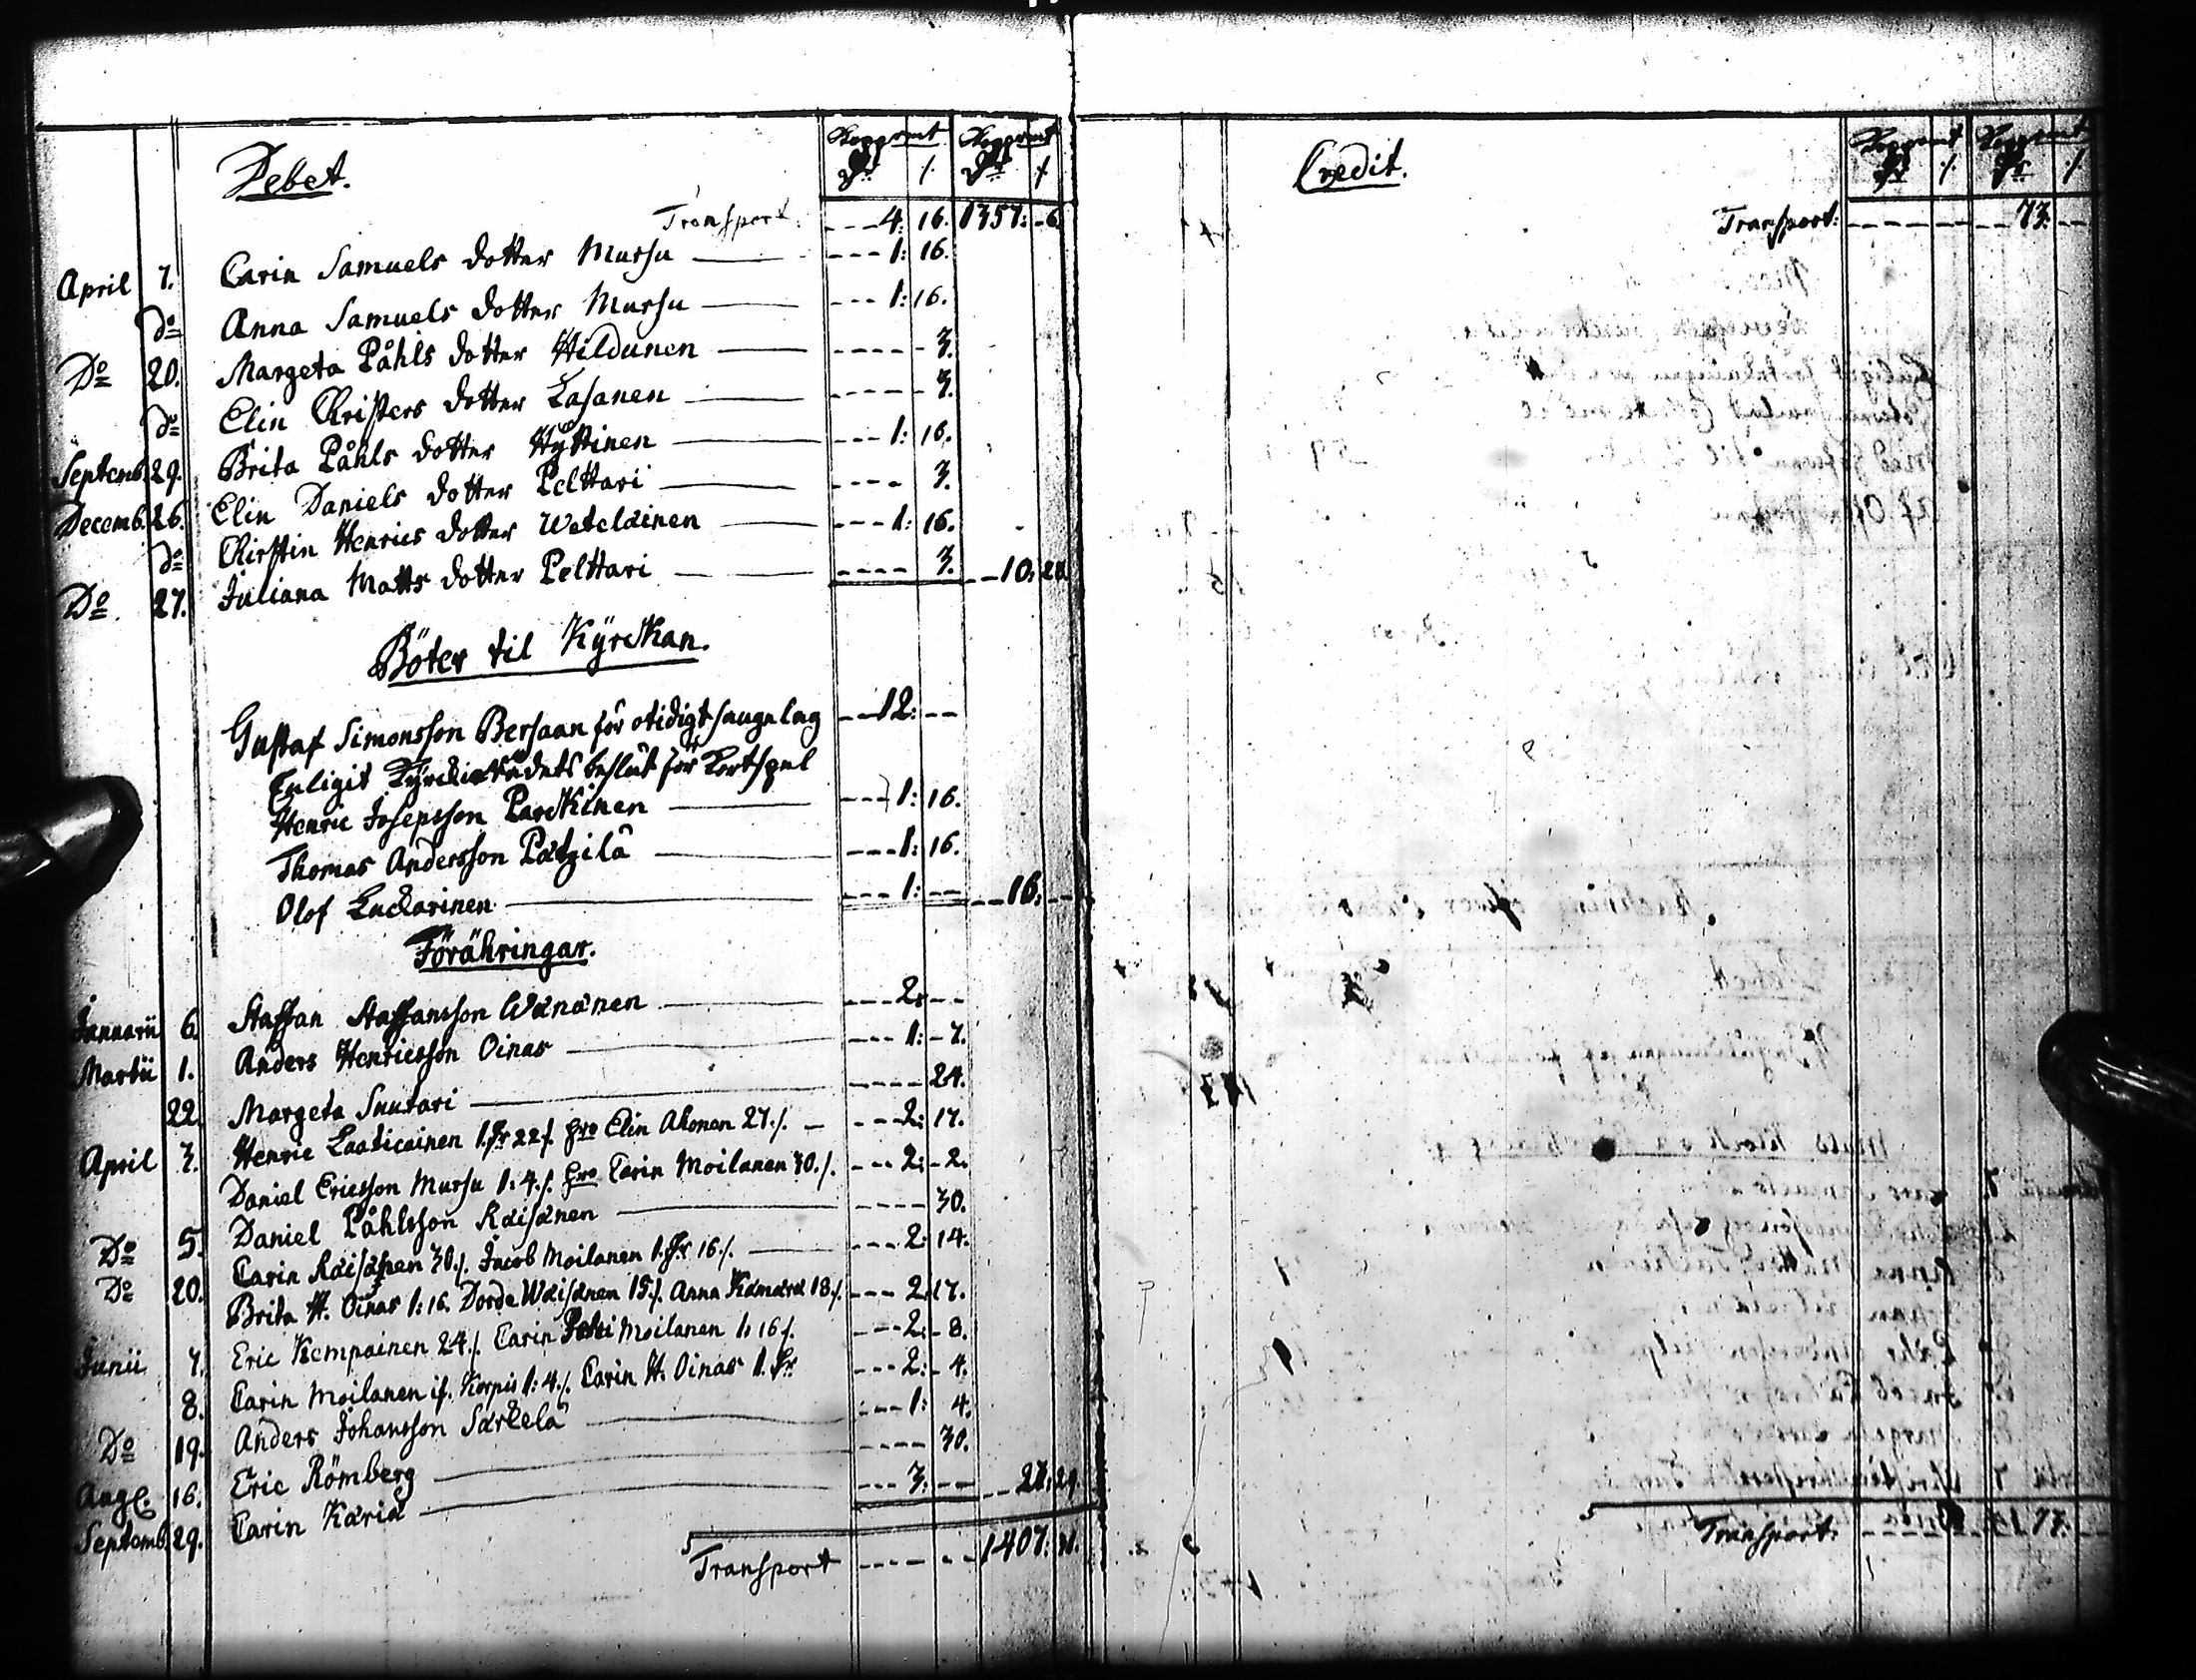 Debet. Koppmt Koppmt
Transport. 4: 16. 1357: 6.
April 7. Carin Samuels dotter Mursu 1: 16.
do Anna Samuels dotter Mursu 1: 16.
Do 20. Margeta Påhls dotter Hildunen 3.
do Elin Christers dotter Lasanen 3.
Septemb. 29. Brita Påhls dotter Hyttinen 1: 16.
Decemb. 26. Elin Daniels dotter Pelttari 3.
do Kirstin Henrics dotter Wetelainen 1: 16.
Do. 27. Juliana Matts dotter Pelttari 3. 10: 28
Böter til Kyrckan.
Gustaf Simonsson Bersaan för otidigt saugelag 12:
Enligit Kyrckiorådets beslut för Kortspel
Henric Josepsson Parckinen 1: 16.
Thomas Andersson Pätzilä 1: 16.
Olof Luckarinen 1: 16:
Förähringar.
Januarii 6. Staffan Staffansson Wänänen 2:
Martii 1. Anders Henricsson Oinas 1: 7.
22. Margeta Suutari 24.
April 3. Henric Laaticainen 1. 22 pro Elin Ahonen 27. 2: 17.
Daniel Ericsson Mursu 1: 4. pro Carin Moilanen 30. 2: 2.
Do 5. Daniel Påhlsson Räisänen 30.
Do 20. Carin Räisänen 30. Jacob Moilanen 1. 16. 2: 14.
Brita H. Oinas 1: 16. Dorde Wäisänen 15. Anna Kämärä 18. 2: 17.
Junii 7. Eric Kempainen 24. Carin Moilanen 1: 16. 2: 8.
8. Carin Moilanen if. Korpis 1: 4. Carin H. Oinas 1. 2: 4.
Do 19. Anders Johansson Särkelä 1: 4.
Aug. 16. Eric Römberg 30.
Septemb. 29. Carin Kariä 3: 23: 29.
Transport 1407: 31.
Credit. Koppmt Koppmt
Transport: 73.
Transport: 77: